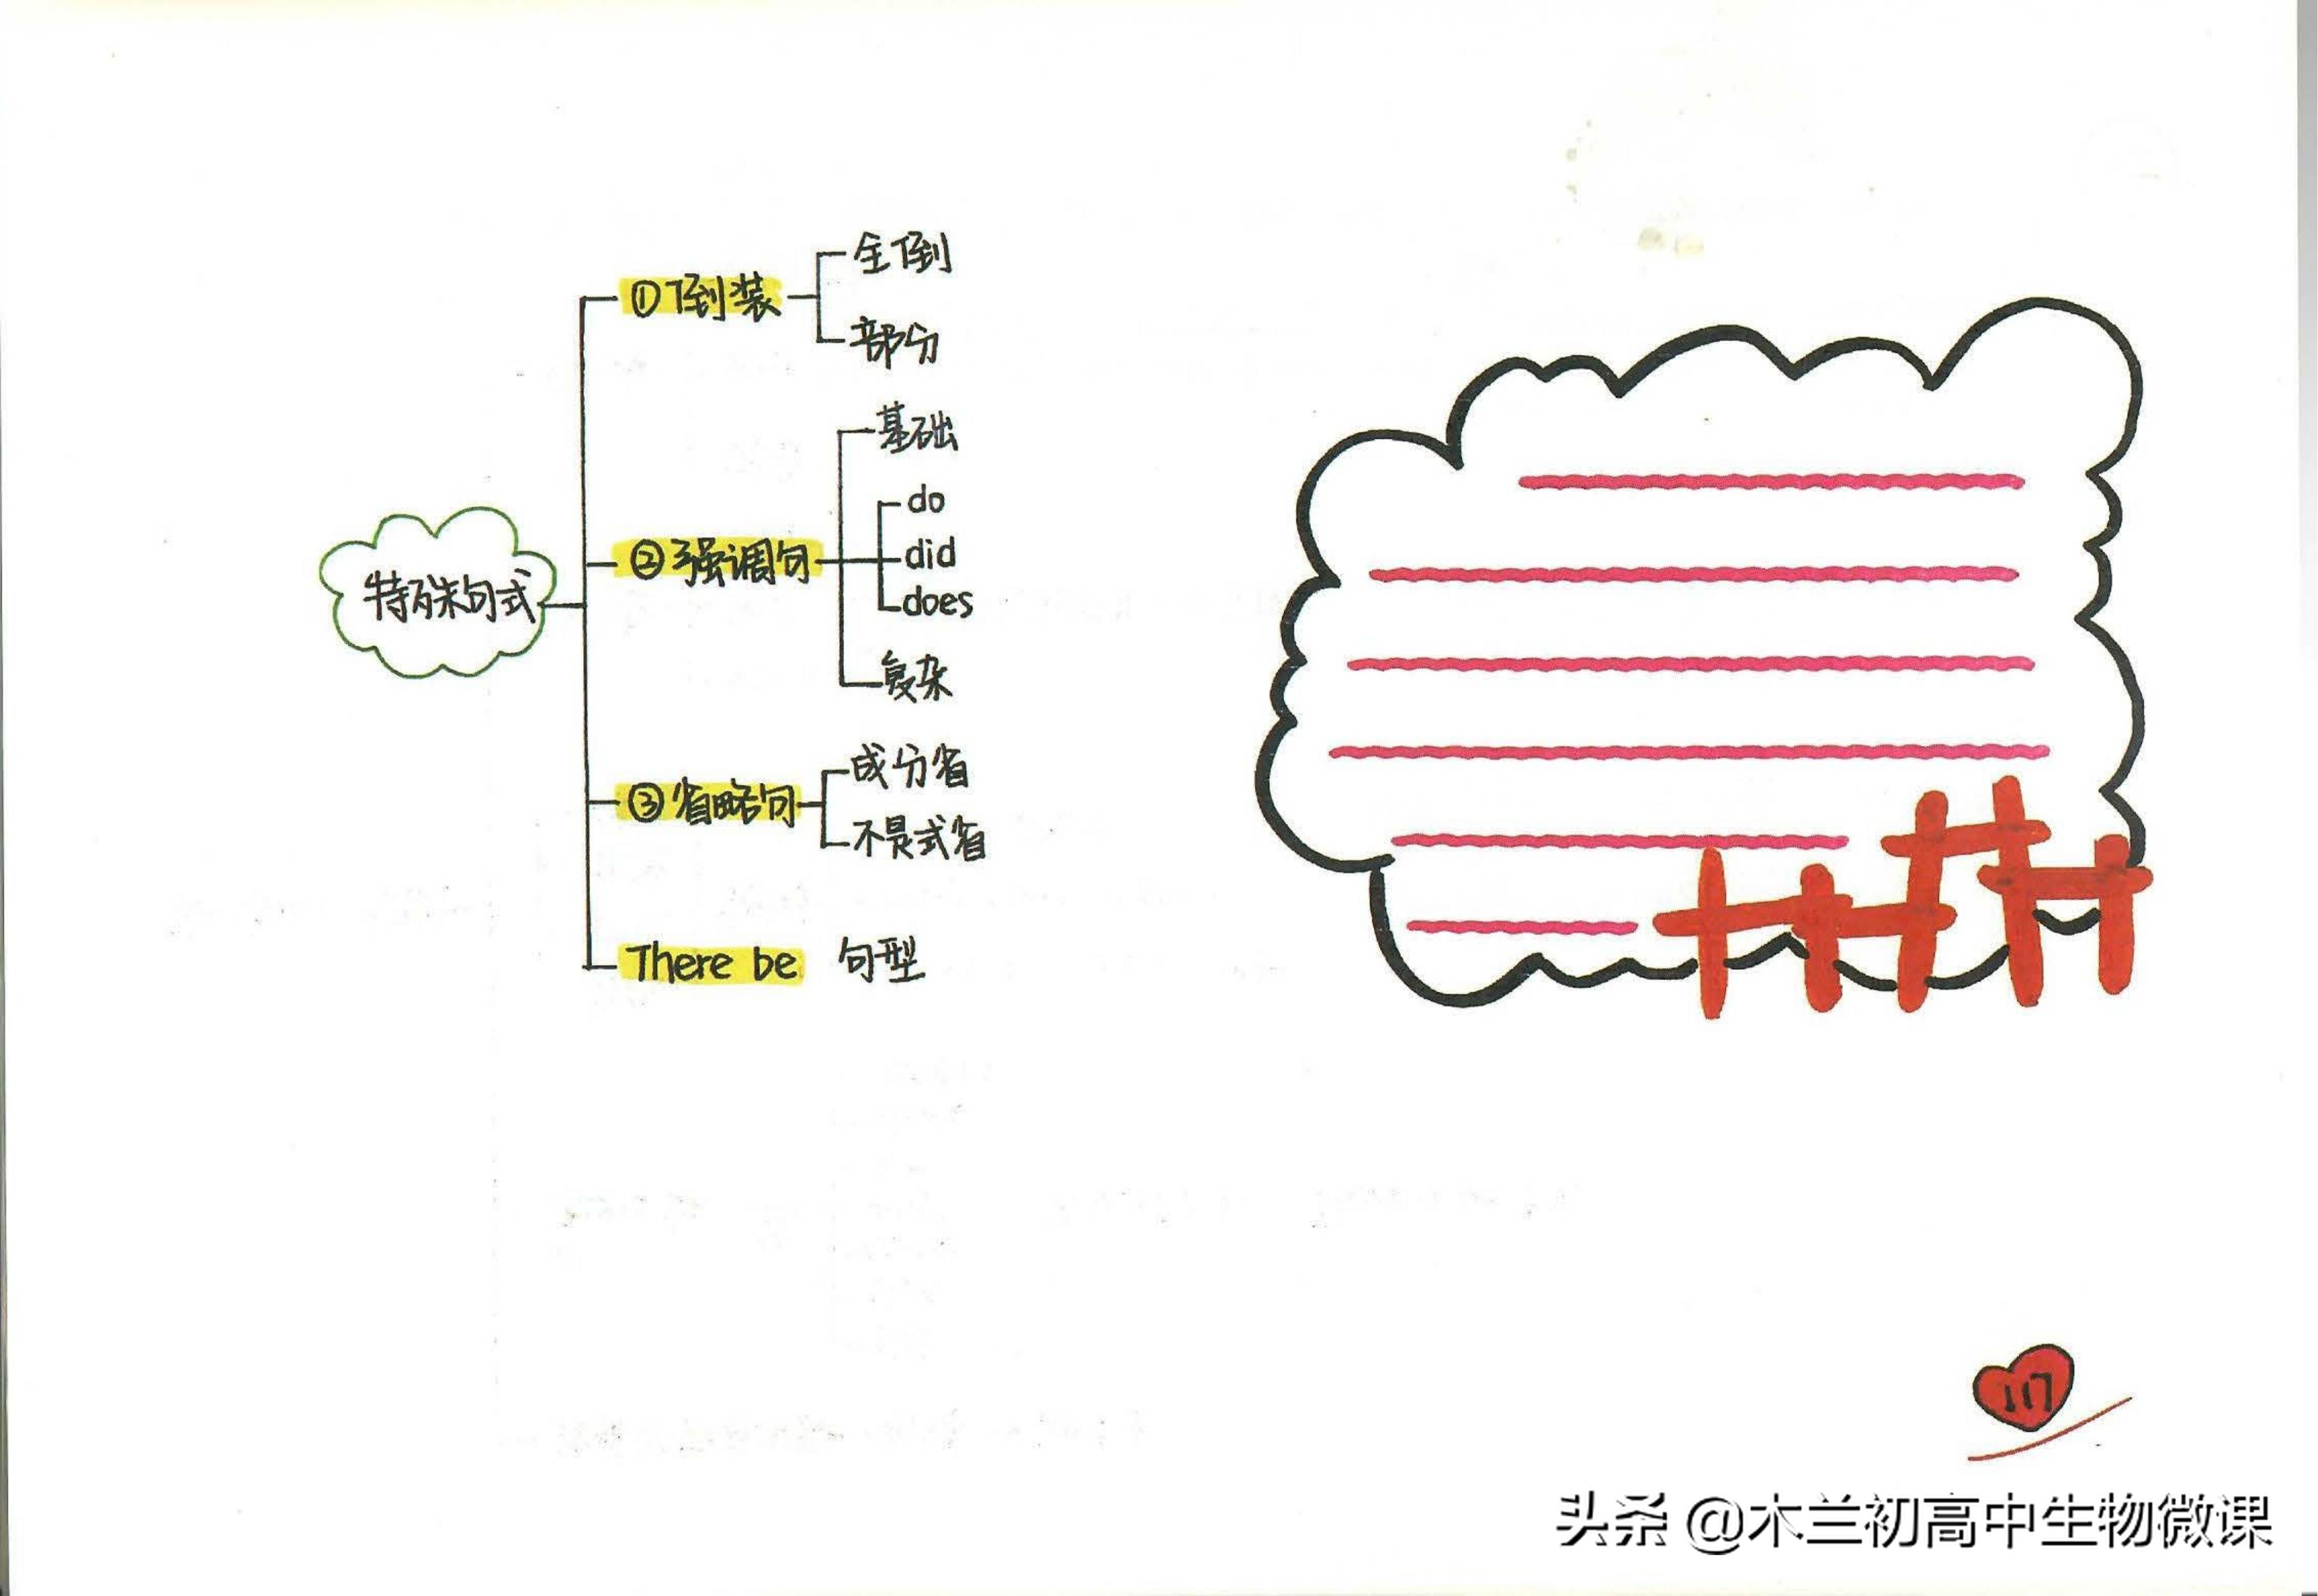 特殊句式
①倒装
全倒
部分
②强调句
基础
do
did
does
复杂
③省略句
成分省
不是式省
There be 句型
117
头条 @木兰初高中生物微课